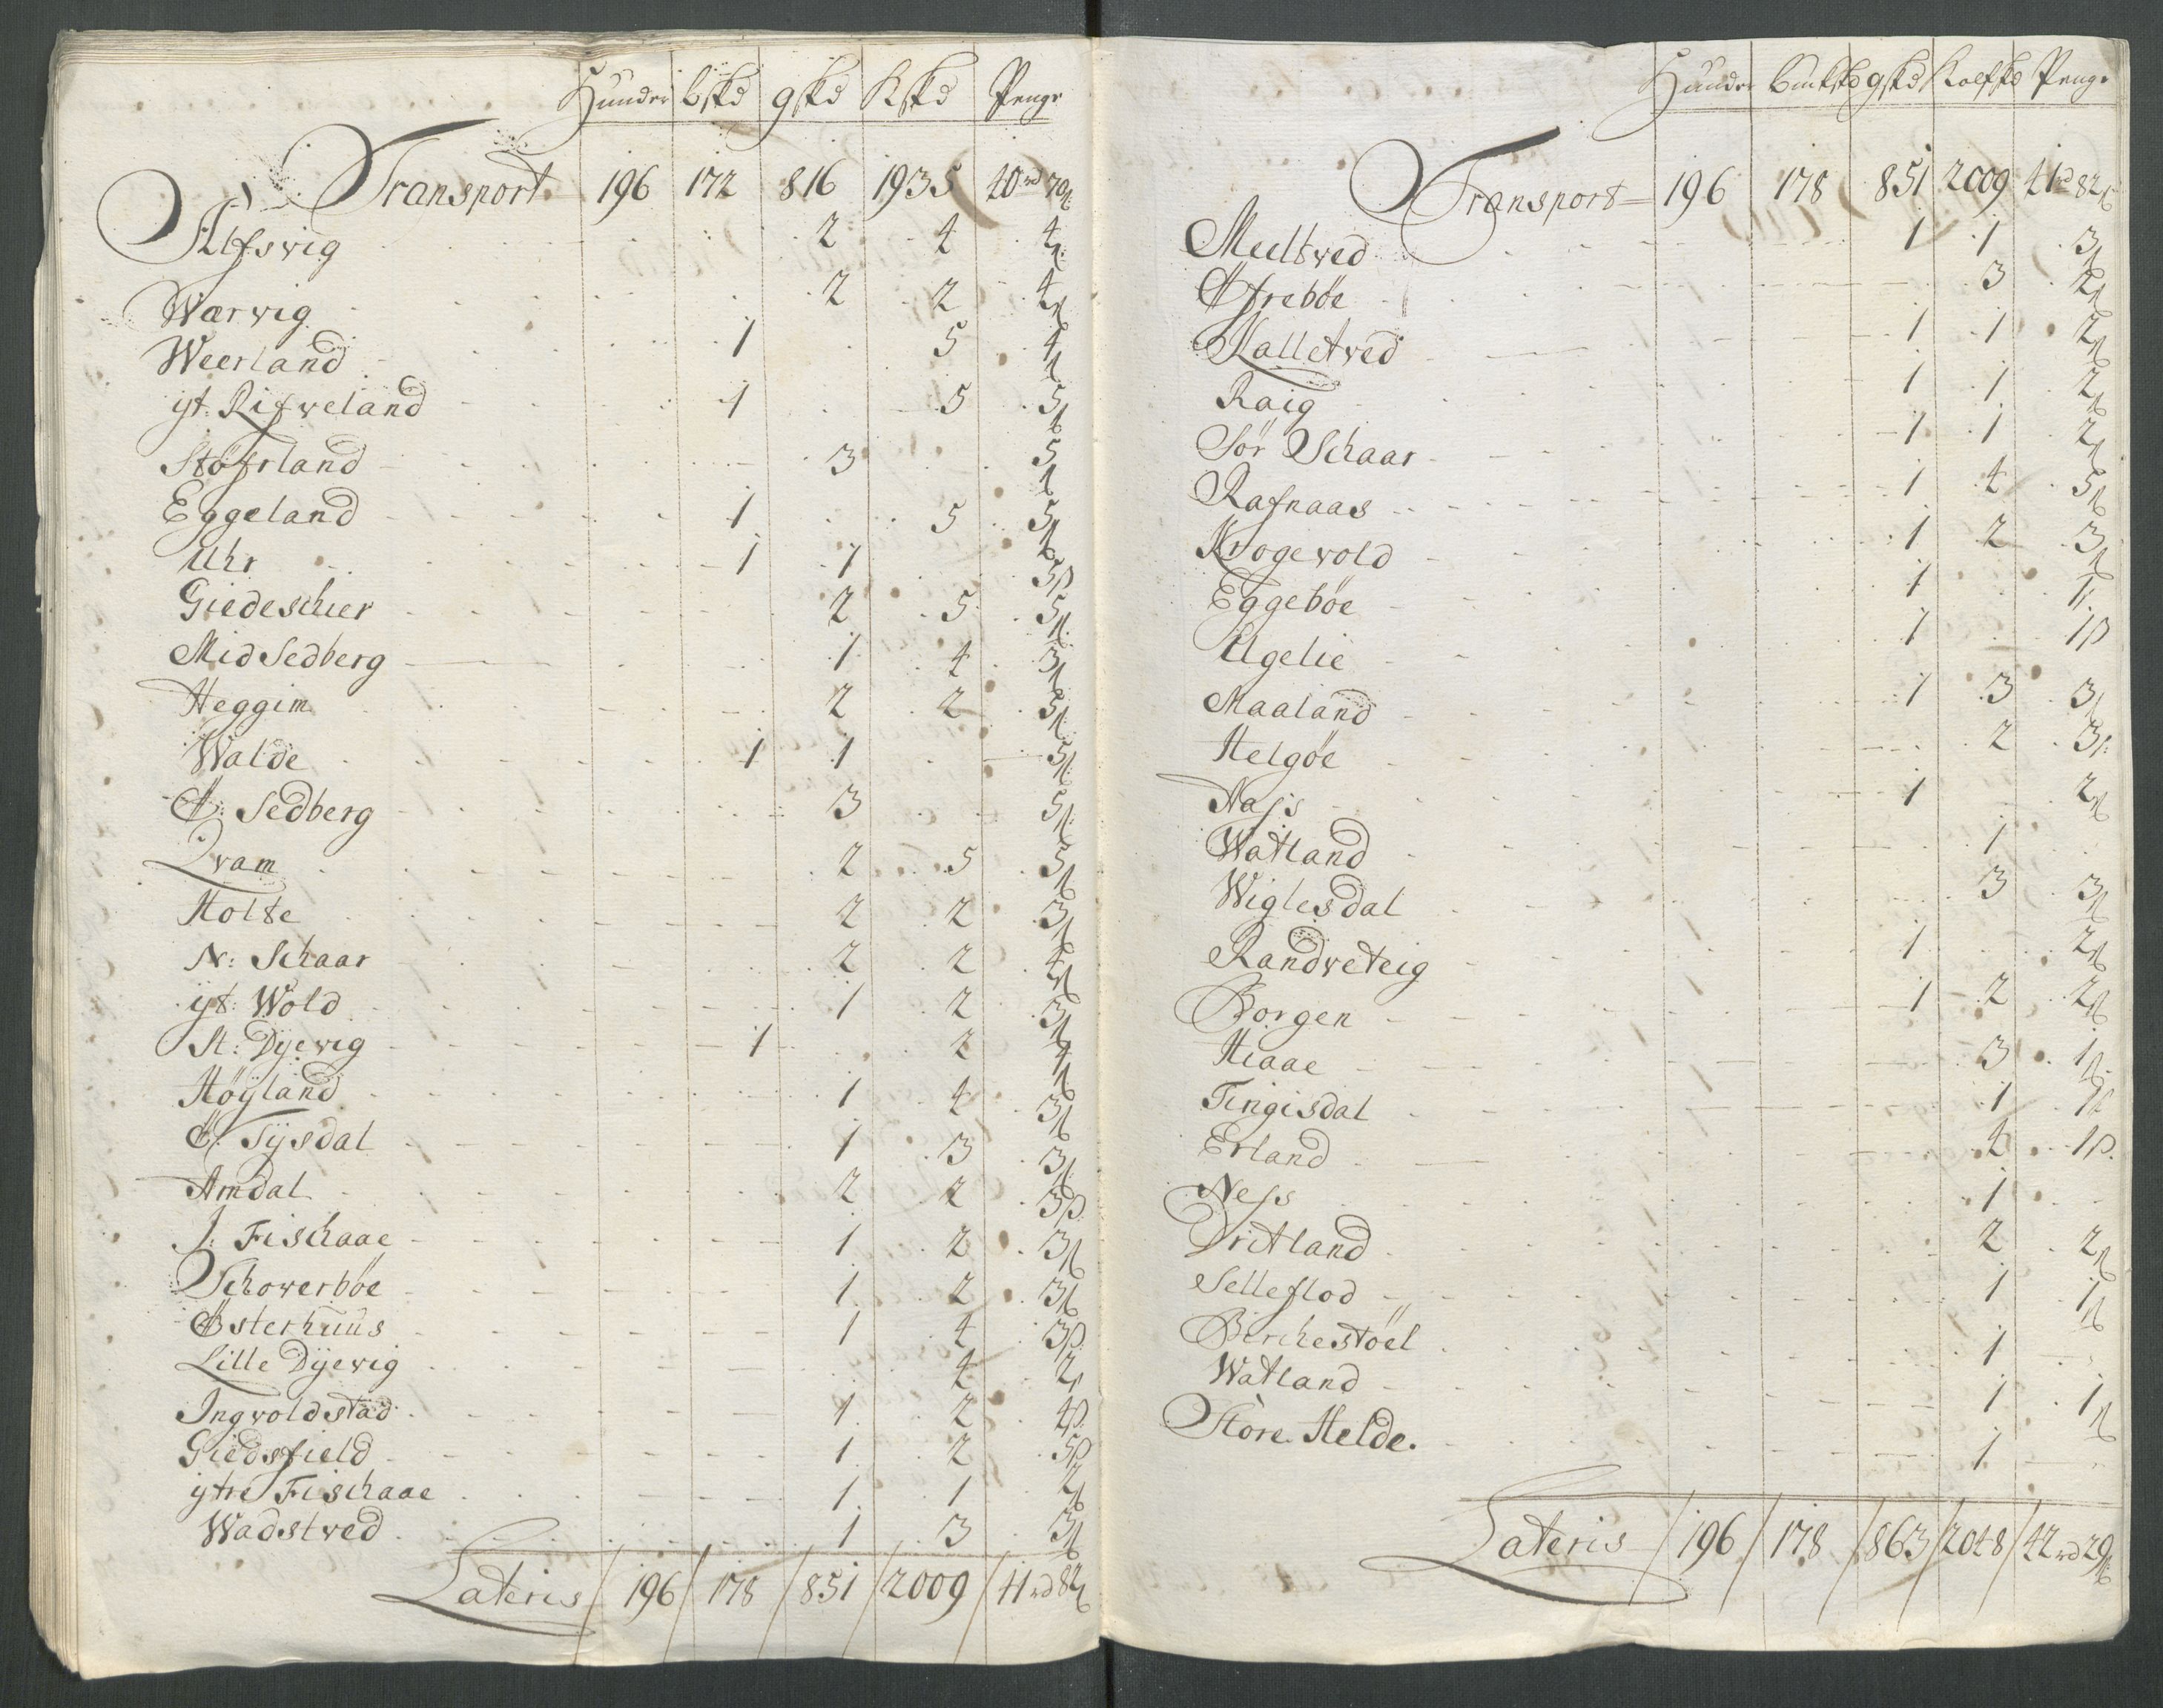 Hunder bskd gskd Kskd Penge
Transport 196 172 816 1935 40rd 70s
Alfsvig 2 4 4s
Wærvig 2 2 4s
Weerland 1 5 4s
yt: Rifweland 1 5 5s
Støfrland 3 5s
Eggeland 1 5 5s
Uhr 1 1 5s
Giedeschier 2 5 5s
Mid Sedberg 1 4 3s
Heggim 2 2 5s
Walde 1 1 5s
Ø: Sedberg 3 5s
Qvam 2 5 5s
Holte 2 2 3s
N: Schaar 2 2 4s
yt: Wold 1 2 3s
St: Dyevig 1 2 4s
Høyland 1 4 3s
Ø: Tysdal 1 3 3s
Amdal 2 2 3s
J: Fischaae 1 2 3s
Schowerbøe 1 2 3s
Østerhuus 1 4 3s
Lille Dyevig 4 2s
Ingvoldstad 1 2 4s
Giedsfield 1 2 5s
ytre Fischaae 1 1 2s
Wadstved 1 3 3s
Lateris 196 178 851 2009 41rd 82s
Hunder Buckskd gskd Kalfskd Penge
Transport 196 178 851 2009 41rd 82s
Meeltved 1 1 3s
Øfrebøe 3 2s
Kalletved 1 1 2s
Raig 1 1 2s
Sør Schaar 1 1 2s
Rafnaas 1 4 5s
Krogevold 1 2 3s
Eggebøe 1 1s
Ugelie 1 1s
Maaland 1 3 3s
Helgøe 2 3s
Aass 1 2s
Watland 1
Wiglesdal 3 3s
Randveteig 1 2s
Borgen 1 2 2s
Hiaae 3 1s
Tingisdal 1 1s
Erland 4 1s
Ness 1
Dritland 2 2s
Selleflod 1 1s
Birchestøel 1
Watland 1 1s
Store Helde. 1
Lateris 196 178 863 2048 42rd 29s